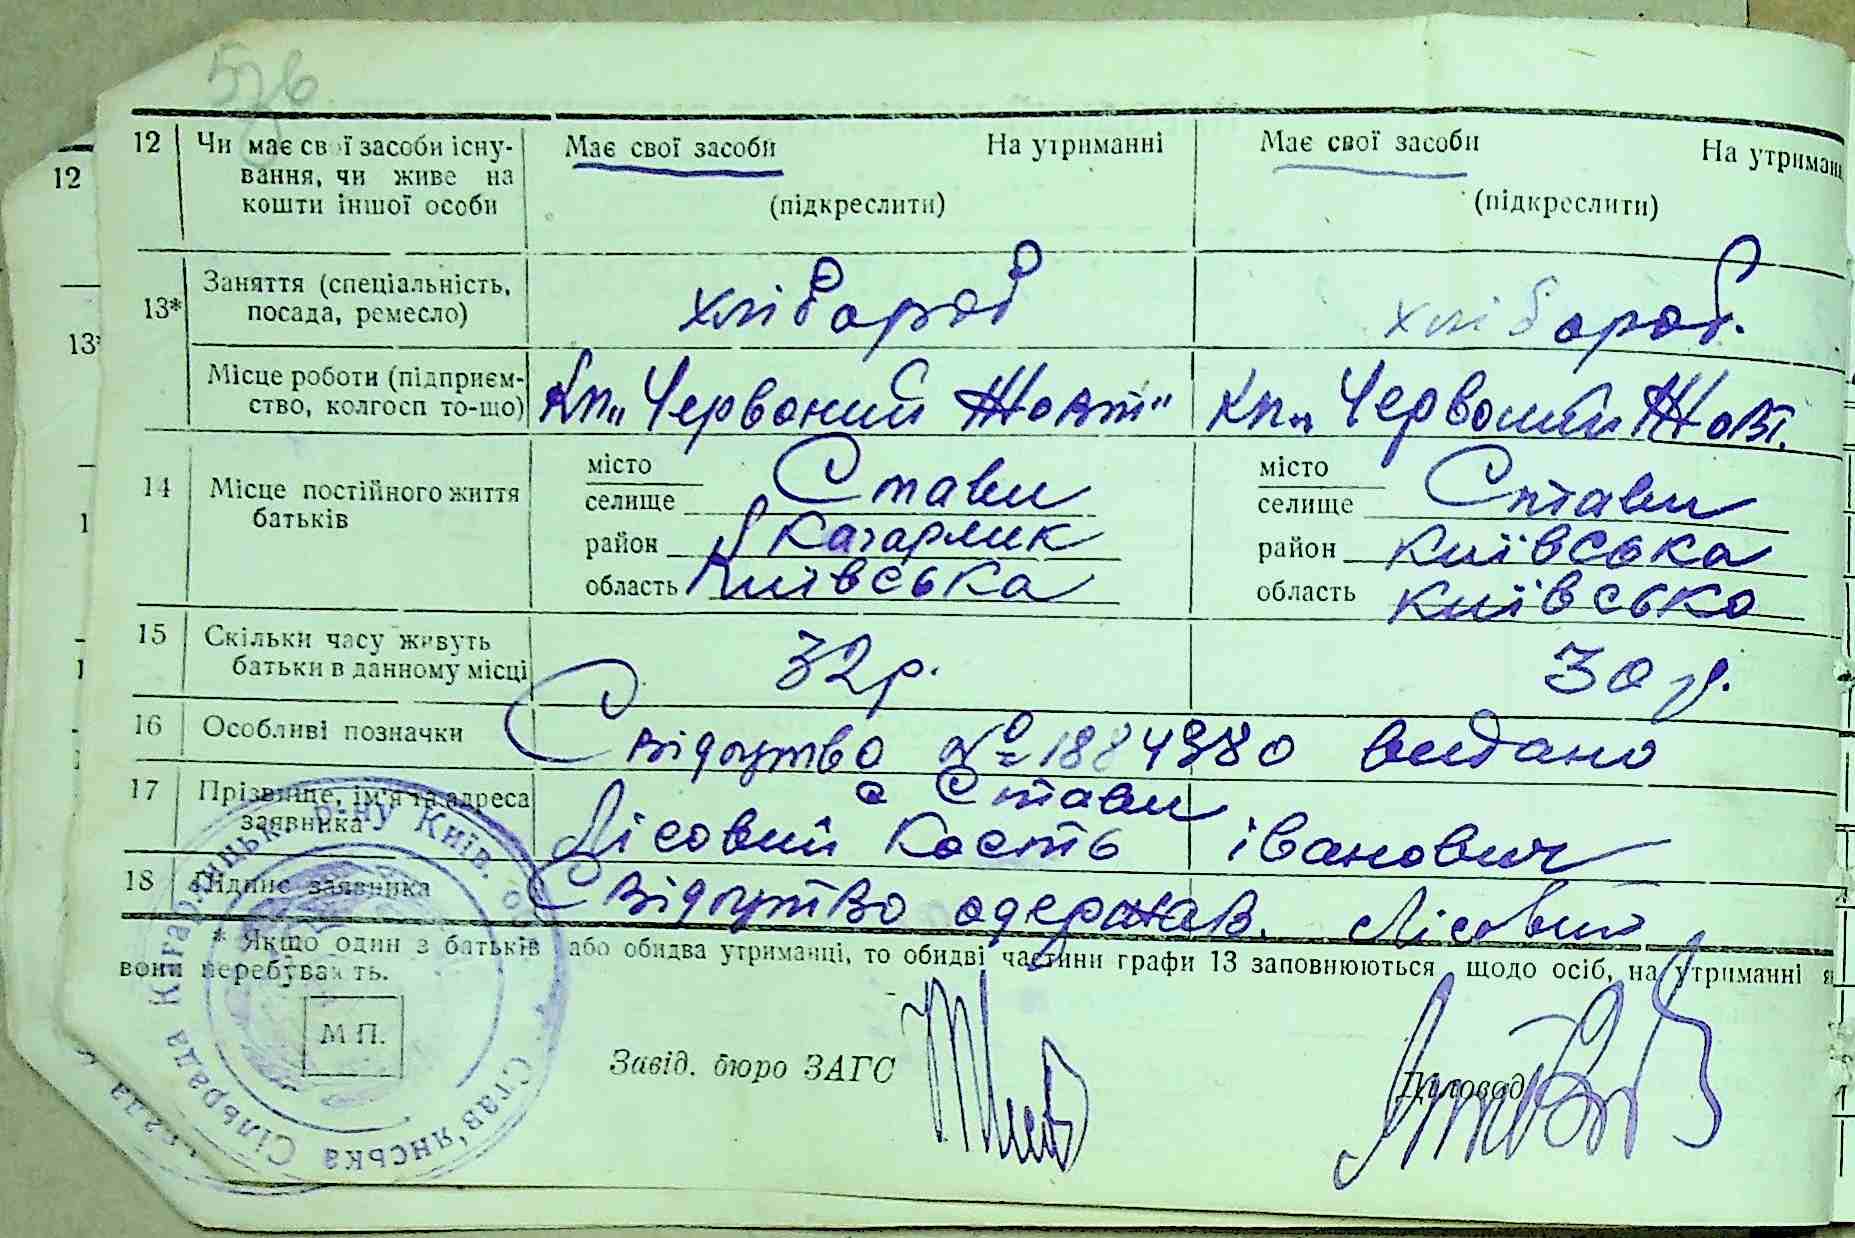 576
12 Чи має свої засоби існу- Має свої засоби На утриманні Має свої засоби На утриман
12 вання, чи живе на
кошти іншої особи (підкреслити) (підкреслити)
13* Заняття (спеціальність, хлібороб хлібороб.
13* посада, ремесло)
Місце роботи (підприєм- Кп „Червоний Жовт" Кп „Червоний Жовт.
ство, колгосп то-що)
14 Місце постійного життя місто Стави місто Стави
батьків селище селище
район Кагарлик район Київська
область Київська область Київсько
15 Скільки часу живуть 32 р. 30 р.
батьки в данному місці
16 Особливі позначки Свідоцтво № 1884980 видано
17 Прізвище, ім'я та адреса с Стави
заявника Лісовий Кость Іванович
18 Підпис заявника Свідоцтво одержав. Лісовий
* Якщо один з батьків або обидва утриманці, то обидві частини графи 13 заповнюються щодо осіб, на утриманні я
вони перебувають.
М П.
Завід. бюро ЗАГС Діловод
Став'янська Сільрада Кагарлицьк. р-ну Київ. об